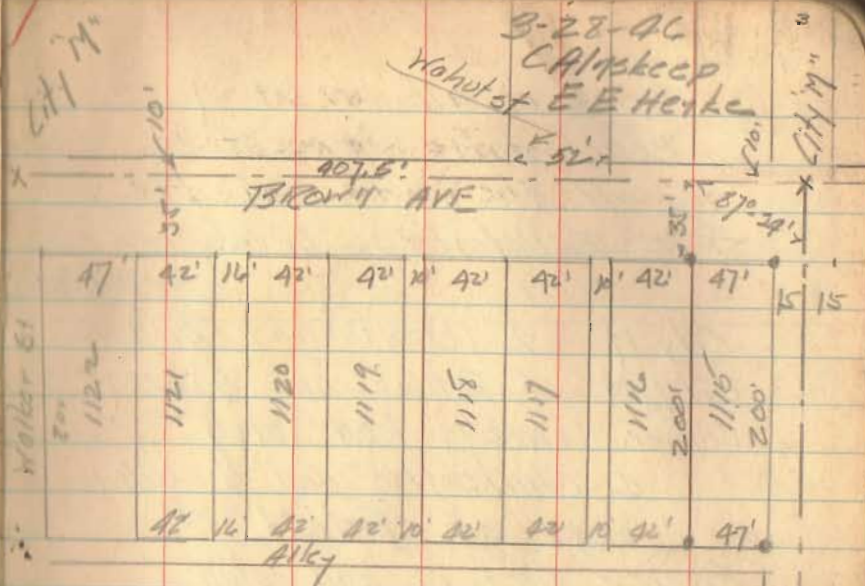 3
3-28-46
City "M"
Walnut st E E Heyke
City "M"
10'
10'
< 52' >
407.5'
BROWN AVE
35'
35'
87°-24'
47' 42' 16' 42' 42' 10' 42' 42' 10' 42' 47'
15 15
Walker St
200
1122 1121 1120 1119 1118 1117 1116 200' 1115 200'
42' 16' 42' 42' 10' 42' 42' 10 42' 47'
Alley